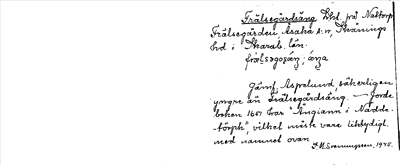 Frälsegårdsäng
Frälsegården Asaka s:n, Vännings
hd i Skarab. län.
frälsogosän̦; än̦a
Jämf. Asprelund, säkerligen
yngre än Frälsegårdsäng. — Jorde
boken 1651 har "Ängiann i Nadde-
törph", vilket måste vara liktydigt
med namnet ovan.
1945.